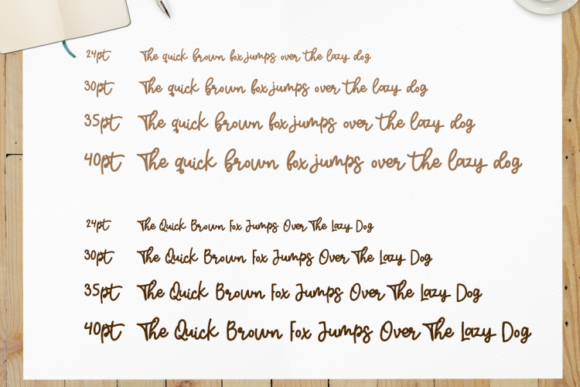 24pt The quick brown fox jumps over the lazy dog
30pt The quick brown fox jumps over the lazy dog
35pt The quick brown fox jumps over the lazy dog
40pt The quick brown fox jumps over the lazy dog
24pt The Quick Brown Fox Jumps Over The Lazy Dog
30pt The Quick Brown Fox Jumps Over The Lazy Dog
35pt The Quick Brown Fox Jumps Over The Lazy Dog
40pt The Quick Brown Fox Jumps Over The Lazy Dog